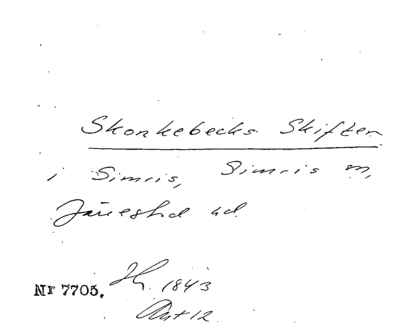 Skonkebecks Skiften
i Simris, Simris m,
Järestad hd
Nr 7705. 1843
Akt 12